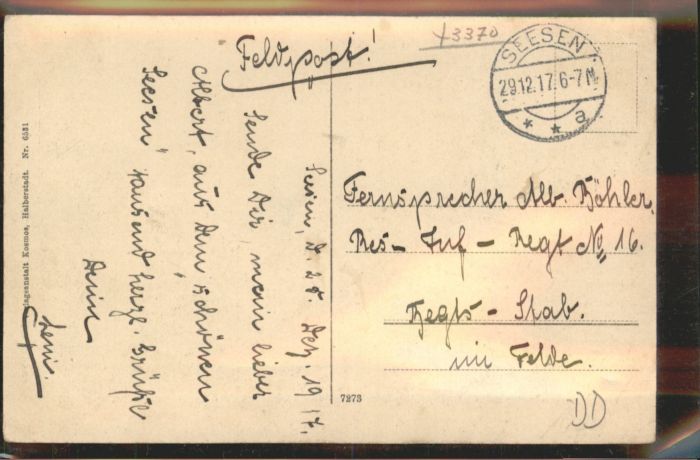 Feldpost!
+3370
SEESEN
29.12.17.6-7N.
* * a
Seesen, d. 28. Dez. 1917.
Sende Dir, mein lieber
Albert, aus dem schönen
"Seesen" tausend herzl. Grüße
Deine
Leni.
Fernsprecher Alb. Böhler,
Res - Inf - Regt No 16.
Regts - Stab.
im Felde.
lagsanstalt Kosmos, Halberstadt. Nr. 6531
7273
DD